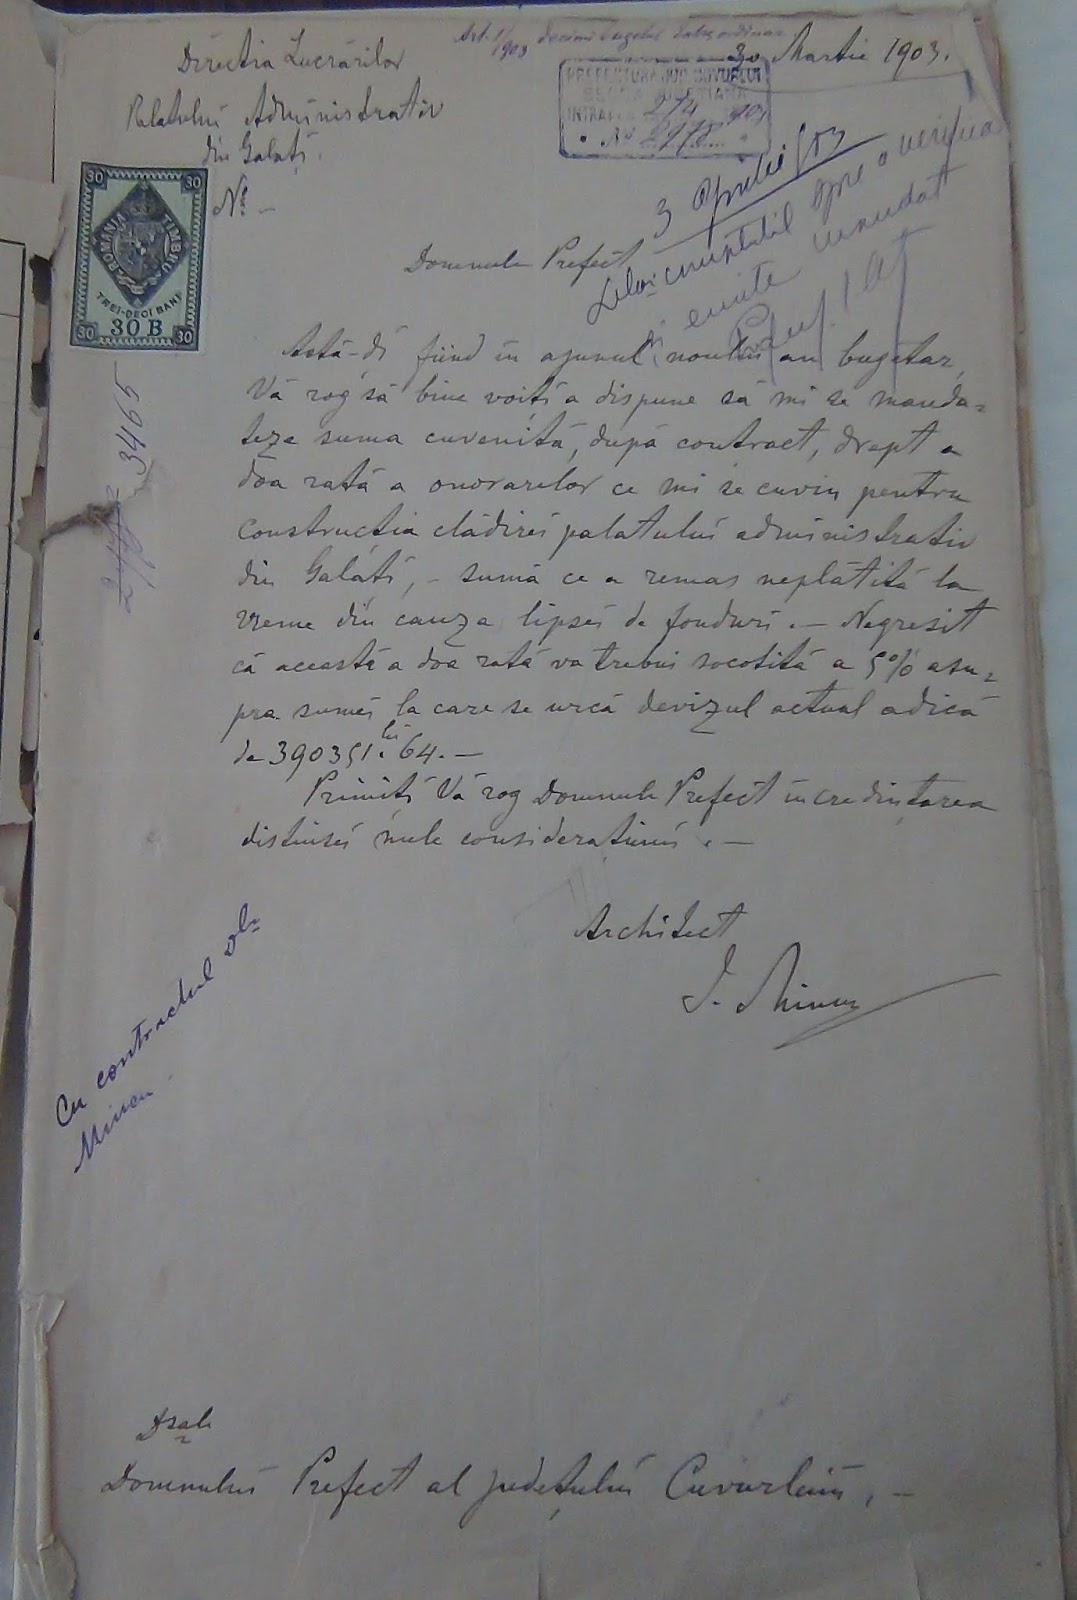 Art. 1/1903
30 Martie 1903.
Directia Lucrărilor
Palatului Administrativ
din Galați.
No –
PREFECTURA JUD. COVURLUI
INTRARE 2/4 903
No 2978
30 30
ROMANIA TIMBRU
TREI-DECI BANI
30 B
30 30
3 Aprilie 903
spre a verifica
emite mandat
Domnule Prefect
Astă-di fiind în ajunul noului an bugetar,
Vă rog să bine voiți a dispune să mi se manda=
teze suma cuvenită, după contract, drept a
doa rată a onorarelor ce mi se cuvin pentru
constructia clădirei palatului administrativ
din Galați, – sumă ce a remas neplătită la
vreme din cauza lipsei de fonduri. – Negresit
că aceastĕ a doa rată va trebui socotită a 5% asu=
pra sumei la care se urcă devizul actual adică
de 390351 lei. 64. –
Primiți Vă rog Domnule Prefect incredințarea
distinsei mele considerațiuni. –
Architect
I. Mincu
3465
Cu contractul dlui
Mincu
Dsale
Domnului Prefect al județului Covurluiu. –